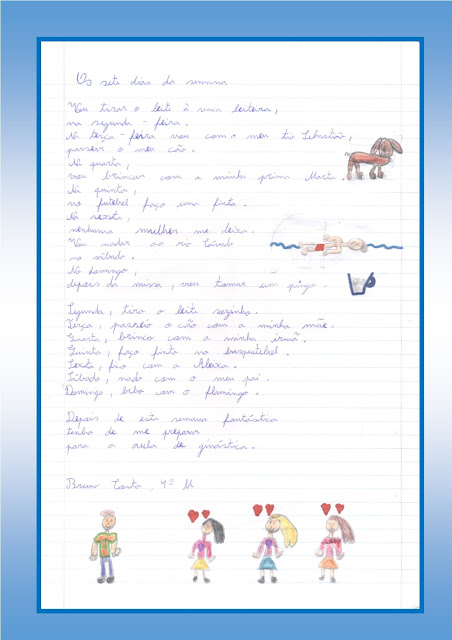 Os sete dias da semana
Vou tirar o leite à vaca leiteira,
na segunda-feira.
Na terça-feira vou com o meu tio Sebastião,
passear o meu cão.
Na quarta,
vou brincar com a minha prima Marta.
Na quinta,
no futebol faço uma finta.
Na sexta,
nenhuma mulher me deixa.
Vou nadar ao rio Cávado
no sábado.
No domingo,
depois da missa, vou tomar um pingo.
Segunda, tiro o leite sozinho.
Terça, passeio o cão com a minha mãe.
Quarta, brinco com a minha irmã.
Quinta, faço finta no basquetebol.
Sexta, fico com a Alexa.
Sábado, nado com o meu pai.
Domingo, bebo com o flamingo.
Depois de esta semana fantástica
tenho de me preparar
para a aula de ginástica.
Bruno Costa, 4º M